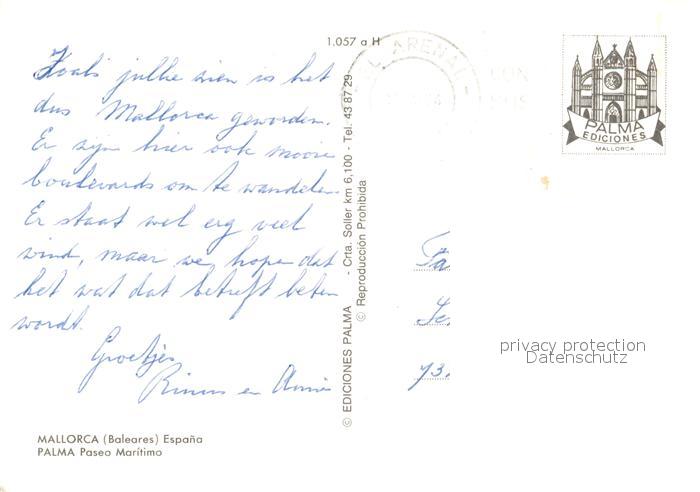 1.057 a H
Zoals jullie zien is het
dus Mallorca geworden.
Er zijn hier ook mooie
boulevards om te wandelen
Er staat wel erg veel
wind, maar we hopen dat
het wat dat betreft beter
wordt.
Groetjes
Rinus en Annie
MALLORCA (Baleares) España
PALMA Paseo Marítimo
© EDICIONES PALMA - Crta. Soller km 6,100 - Tel. 43 87 29
© Reproducción Prohibida
ARENAL
PALMA
EDICIONES
MALLORCA
Fa
Se
73.
privacy protection
Datenschutz